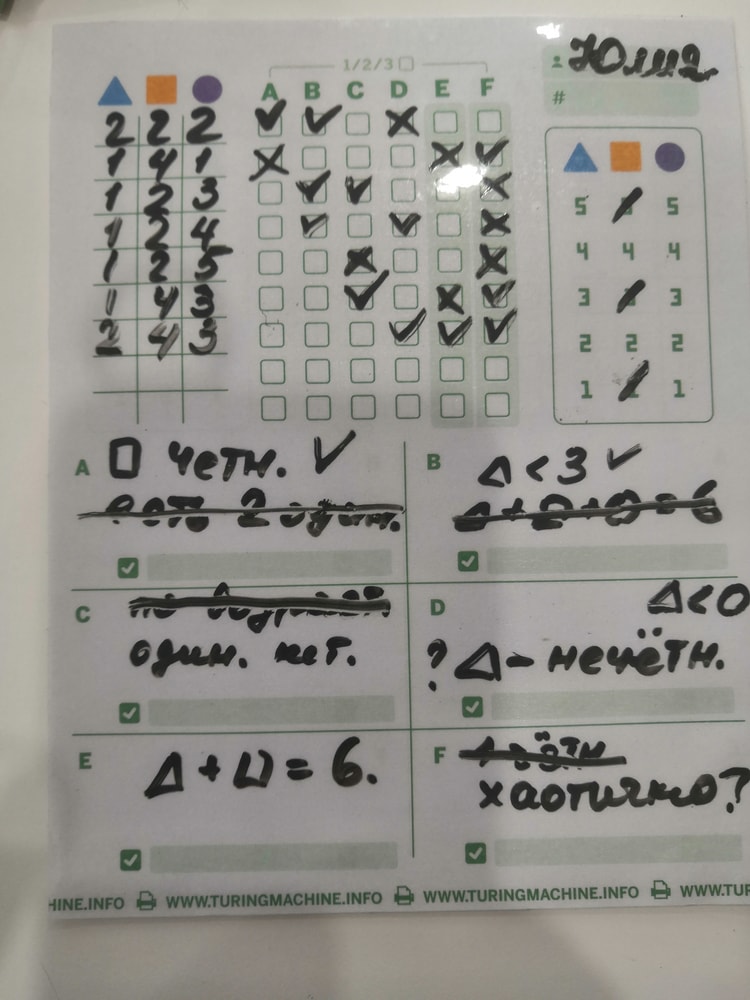 1/2/3
A B C D E F
Юлиа
#
2 2 2
1 4 1
1 2 3
1 2 4
1 2 5
1 4 3
2 4 3
5 5
4 4 4
3 3
2 2 2
1 1
A □ четн. ✓
B △ < 3 ✓
C
один. нет.
D △ < ○
? △ - нечётн.
E △ + □ = 6.
F
хаотично?
HINE.INFO WWW.TURINGMACHINE.INFO WWW.TURINGMACHINE.INFO WWW.TUR